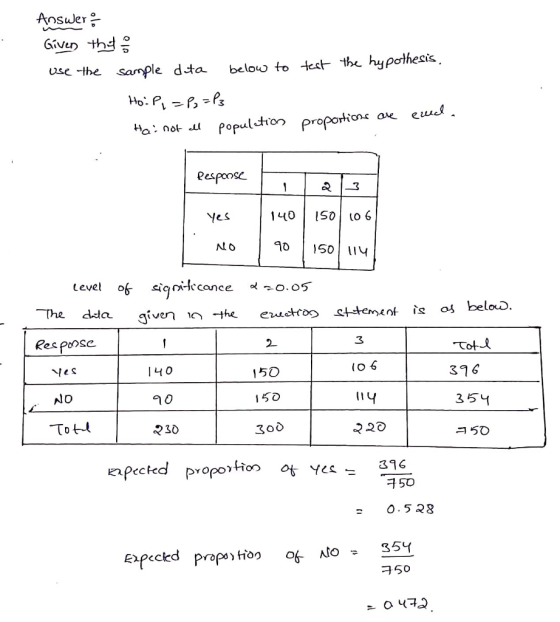 Answer :
Given that :
use the sample data below to test the hypothesis.
H₀: P₁ = P₂ = P₃
Ha: not all population proportions are equal.
Response
1 2 3
Yes 140 150 106
NO 90 150 114
level of significance α = 0.05
The data given in the question statement is as below.
Response 1 2 3 Total
Yes 140 150 106 396
NO 90 150 114 354
Total 230 300 220 750
Expected proportion of Yes = 396/750
= 0.528
Expected proportion of NO = 354/750
= 0.472.